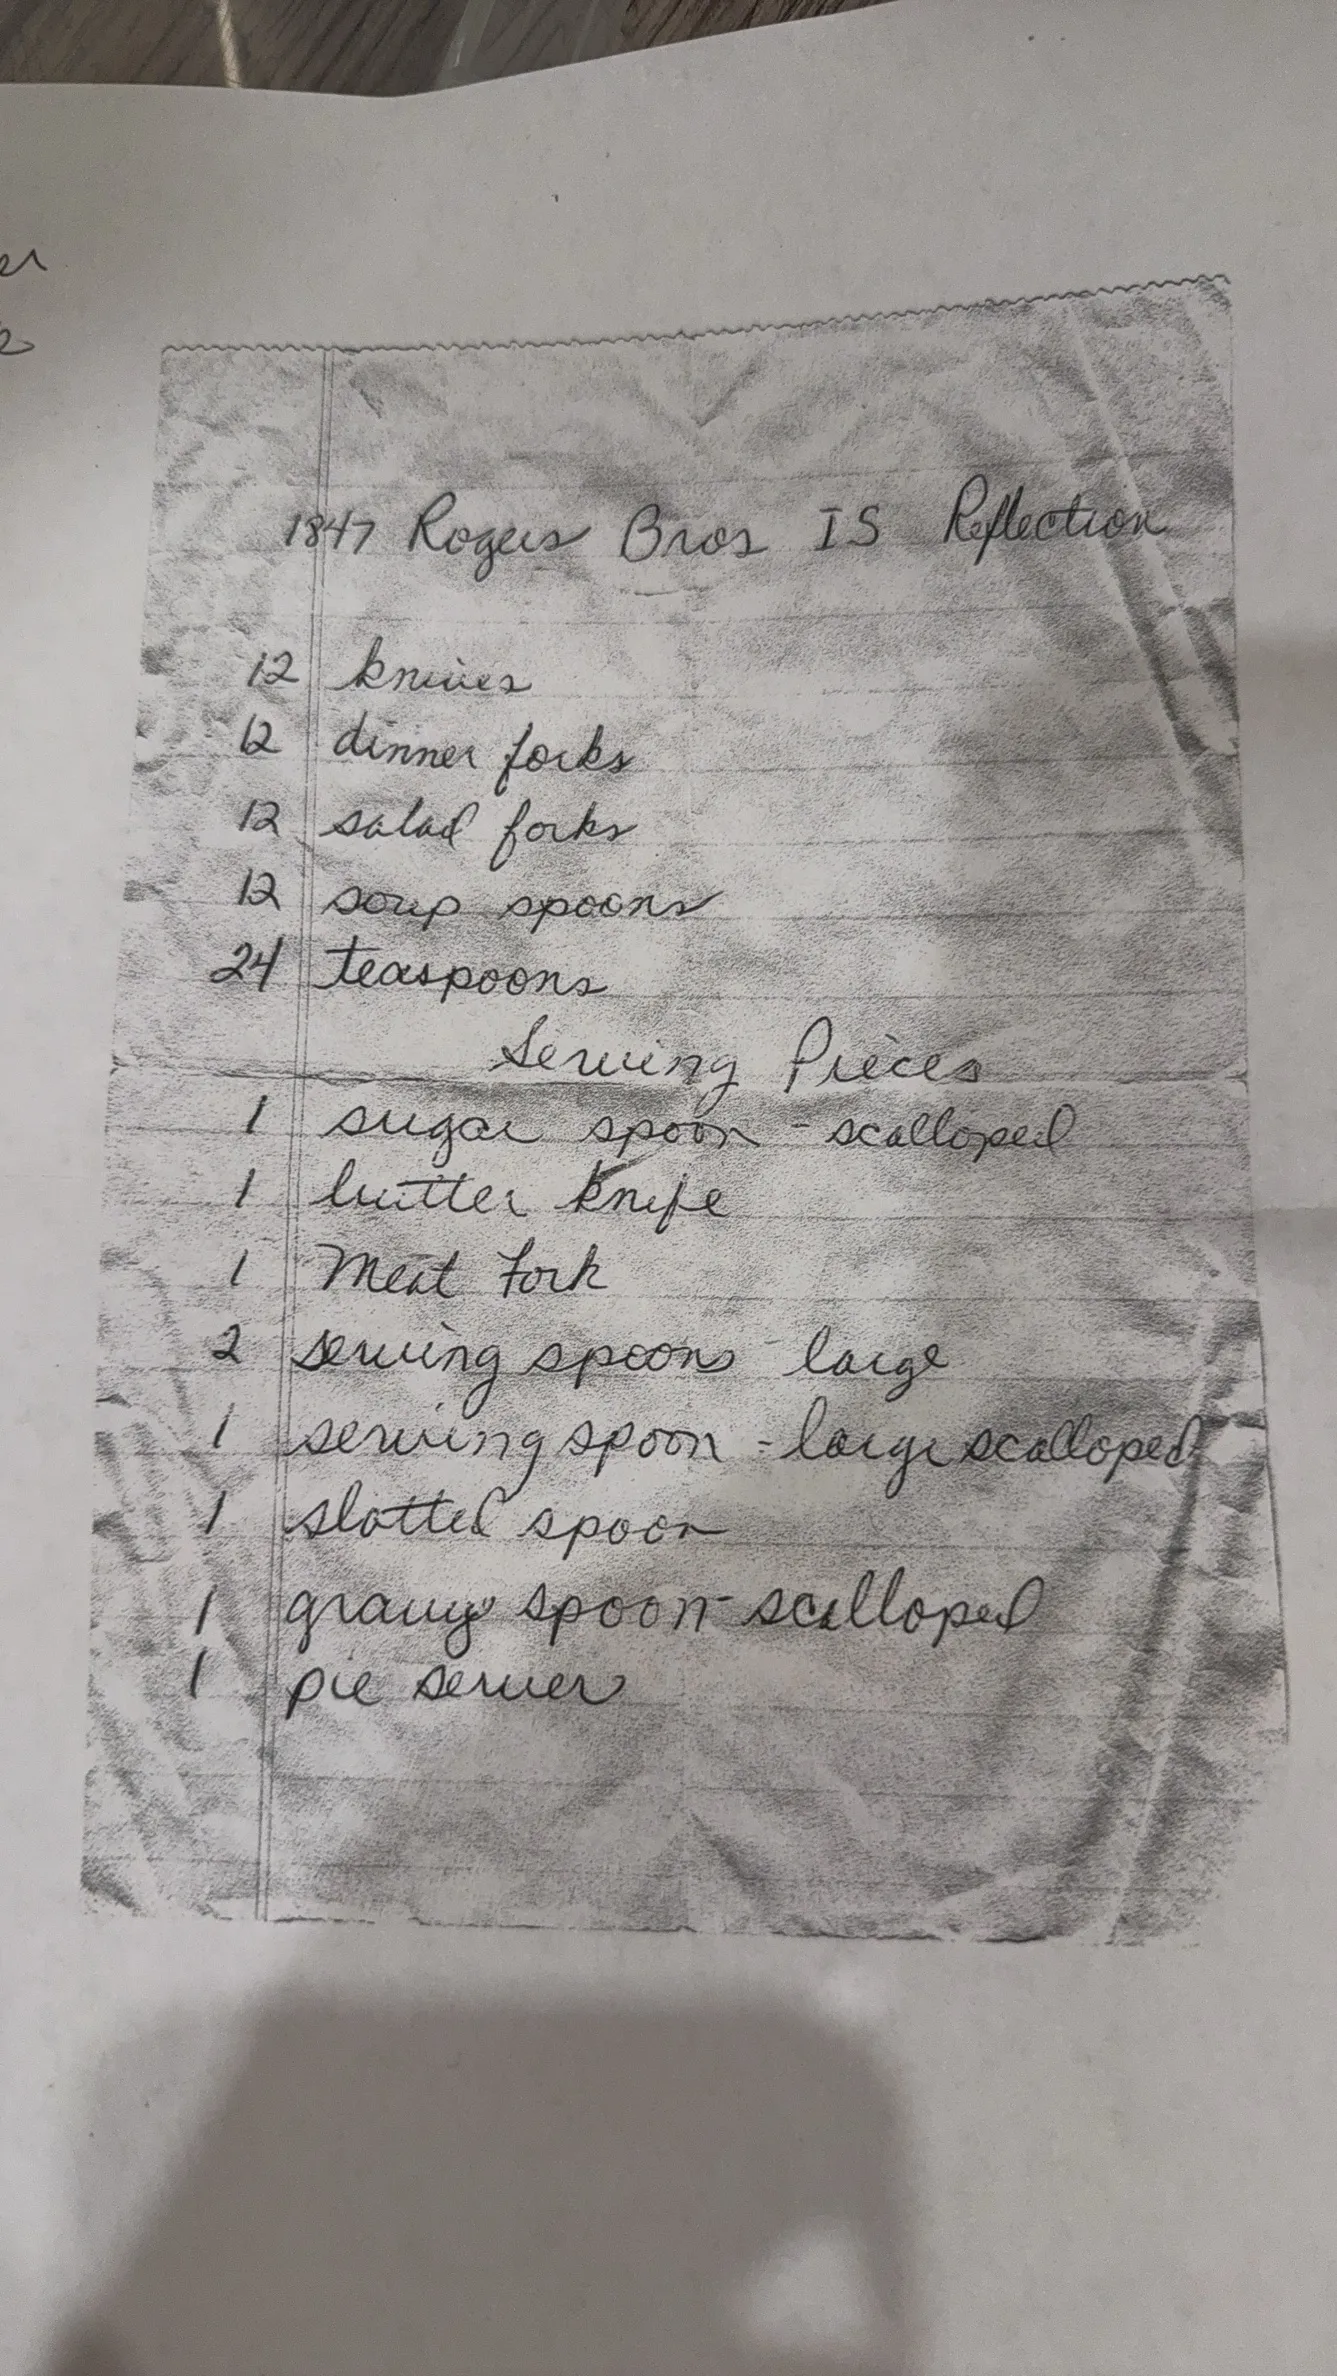 1847 Rogers Bros IS Reflection
12 knives
12 dinner forks
12 salad forks
12 soup spoons
24 teaspoons
Serving Pieces
1 sugar spoon - scalloped
1 butter knife
1 Meat Fork
2 serving spoons large
1 serving spoon - large scalloped
1 slotted spoon
1 gravy spoon - scalloped
1 pie server